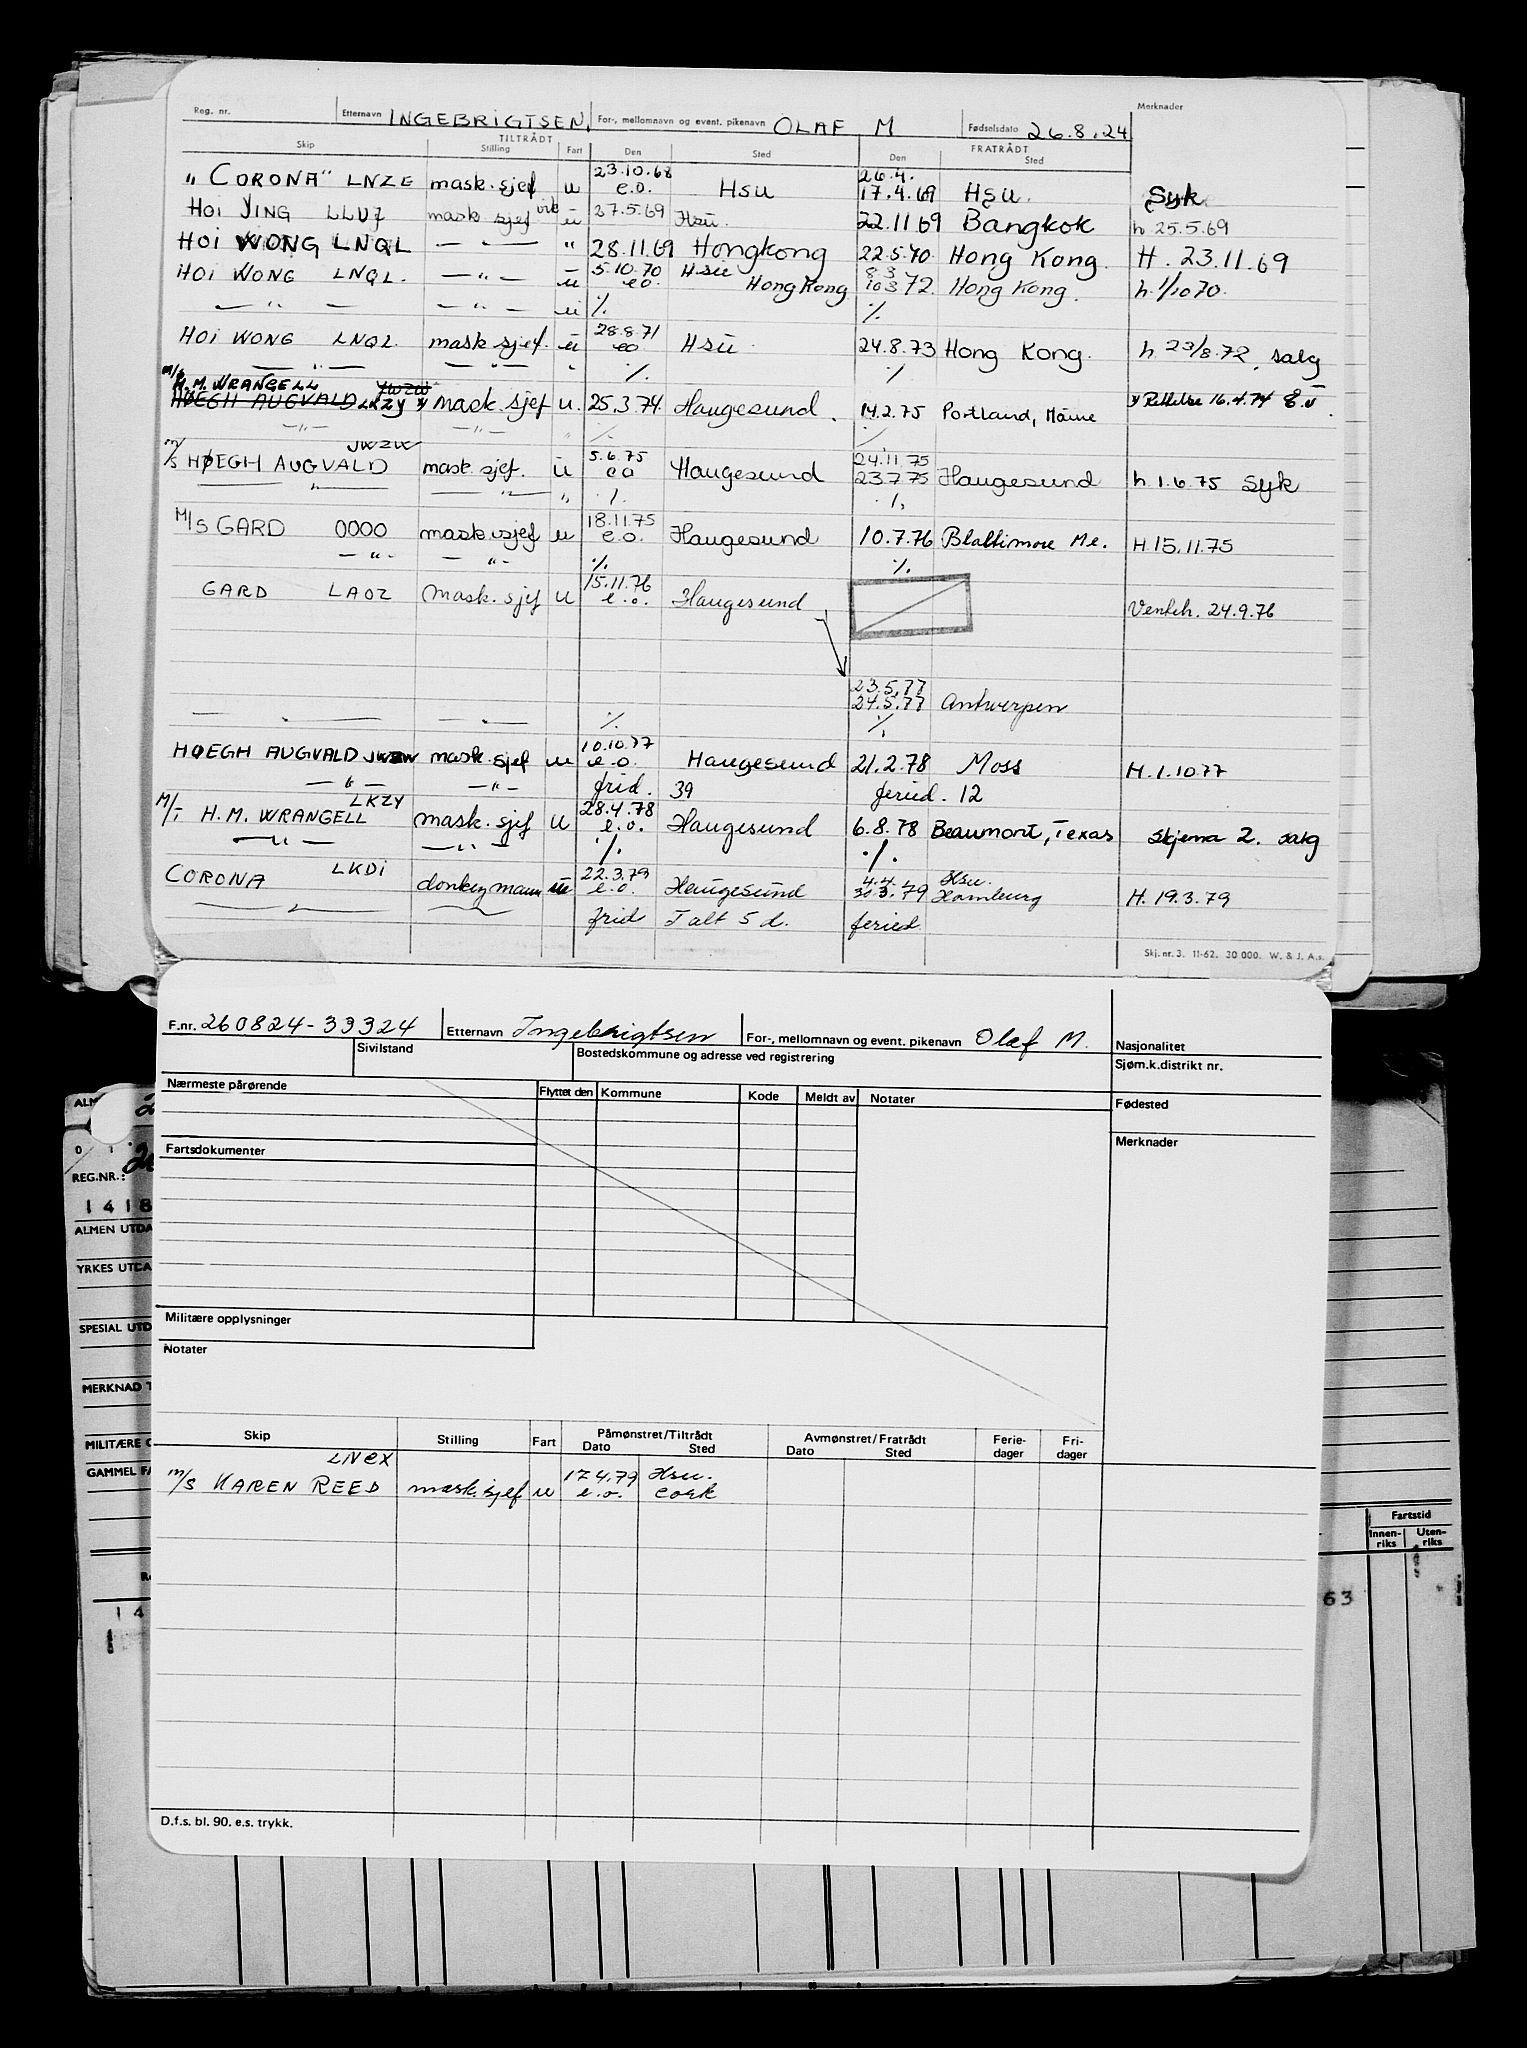 Reg. nr. Etternavn INGEBRIGTSEN, For-, mellomnavn og event. pikenavn OLAF M Fødselsdato 26.8.24 Merknader
TILTRÅDT FRATRÅDT
Skip Stilling Fart Den Sted Den Sted
23.10.68 26.4.
"CORONA" LNZE mask. sjef u e.o. Hsu 17.4.69 Hsu. Syk
HOI YING LLUZ mask sjef vik ü 27.5.69 Hsu. 22.11 69 Bangkok h 25.5.69
HOI WONG LNQL — " — " 28.11.69 Hongkong 22.5.70 Hong Kong. H. 23.11.69
5.10.70 Hsu 8 3
HOI WONG LNQL. — " — u eo Hong Kong 10 3 72 Hong Kong. h. 1/10 70.
— " — — " — u % %
28.8.71
HOI WONG LNQL mask sjef. u eo Hsu. 24.8.73 Hong Kong. h 23/8.72, salg
— " — — " — " % %
M/S H.M. WRANGELL JWZW
HØEGH AUGVALD LKZY mask. sjef u. 25.3.74. Haugesund. 14.2.75 Portland, Maine Rettelse 16.4.74
— " — — " — " % %
JWZW 5.6.75 24.11.75
M/S HØEGH AUGVALD mask. sjef. u eo Haugesund 23.7.75 Haugesund h.1.6.75 Syk
— " — — " — " % %
18.11.75
M/S GARD OOOO mask. sjef u e.o. Haugesund 10.7.76 Blaltimore Me. H.15.11.75
— " — — " — % %
15.11.76
GARD LAOZ Mask. sjef u e.o. Haugesund Venteh. 24.9.76
23.5.77
24.5.77 Antwerpen
— " — — " — % %
10.10.77
HØEGH AUGVALD JWZW mask. sjef u e.o. Haugesund 21.2.78 Moss H.1.10.77
— " — — " — frid. 39 feried. 12
LKZY 28.4.78
M/S H.M. WRANGELL mask. sjef u e.o. Haugesund 6.8.78 Beaumont, Texas skjema 2. salg
— " — — " — % %
LKDI 22.3.79 4.4. Hsu.
CORONA donkeymann u e.o. Haugesund 30.3.79 Hamburg H. 19.3.79
frid I alt 5 d. feried
Skj. nr. 3. 11-62. 30 000. W. & J. A.s.
F.nr. 260824-33324 Etternavn Ingebrigtsen For-, mellomnavn og event. pikenavn Olaf M. Nasjonalitet
Sivilstand Bostedskommune og adresse ved registrering Sjøm.k.distrikt nr.
Nærmeste pårørende Flyttet den Kommune Kode Meldt av Notater Fødested
Fartsdokumenter Merknader
Militære opplysninger
Notater
Skip Stilling Fart Påmønstret/Tiltrådt Avmønstret/Fratrådt Ferie-dager Fri-dager
Dato Sted Dato Sted
LNCX 17.4.79 Hsu.
M/S KAREN REED mask. sjef u e.o. Cork
D.f.s. bl. 90. e.s. trykk.
ALM
REG.NR.: 26
1 4 1 8
ALMEN UTDA
YRKES UTDA
SPESIAL UTD
MERKNAD T
MILITÆRE O
GAMMEL FA
1 4
Fartstid
Innen-riks Uten-riks
63